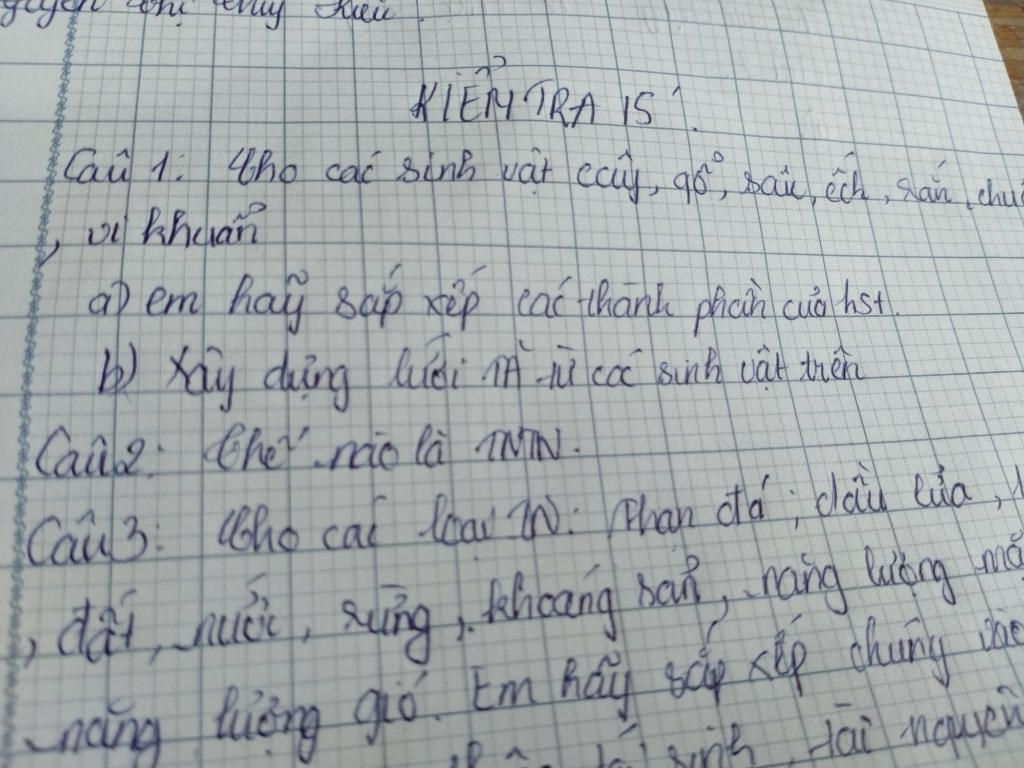 KIỂM TRA 15'.
Câu 1: Cho các sinh vật ccây, gỗ, sâu, ếch, rắn, chuộ
, vi khuẩn
a) em hãy sắp xếp các thành phần của hst.
b) Xây dựng lưới TĂ từ các sinh vật trên
Câu 2: Thế nào là TNTN.
Câu 3: Cho các loại TN: Than đá, dầu lửa,
, đất, nước, rừng, khoáng sản, năng lượng mặ
năng lượng gió. Em hãy sắp xếp chúng vào
sinh, tài nguyên